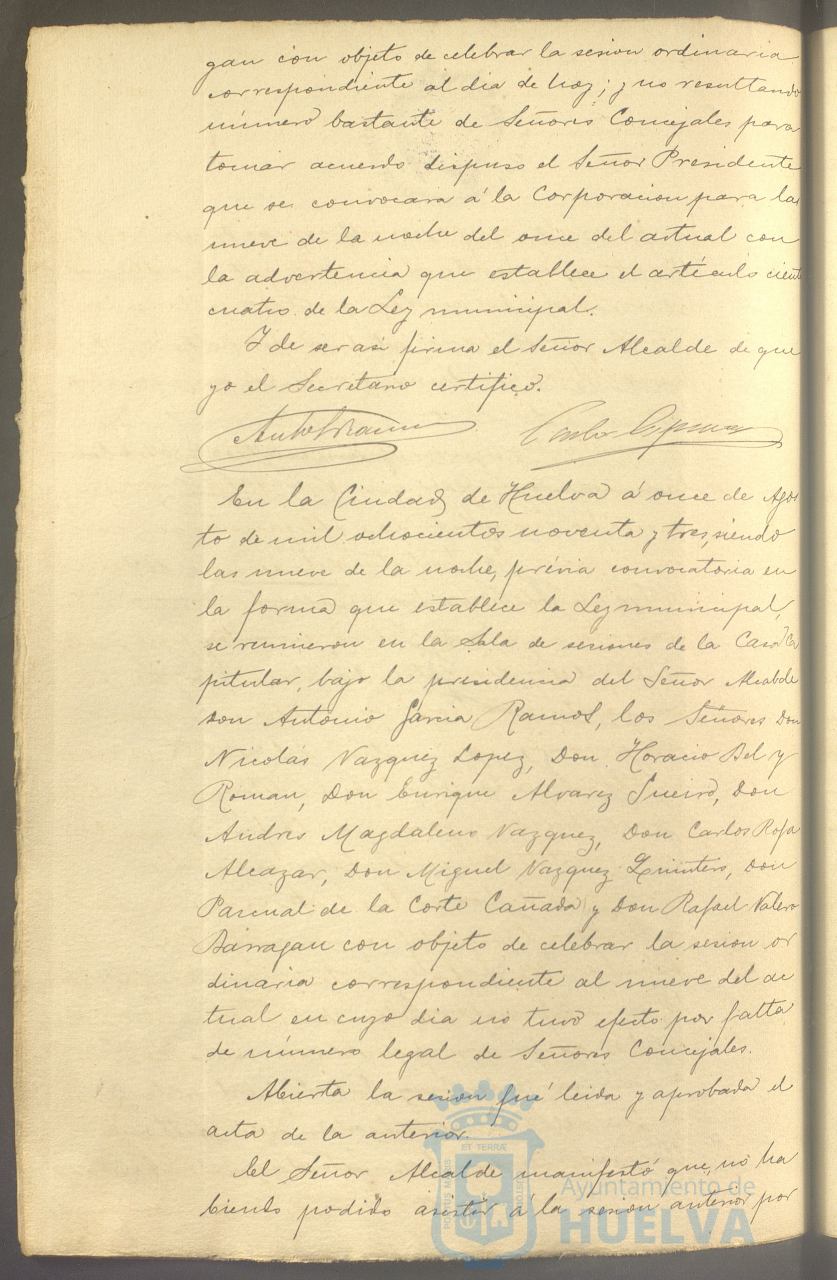 gan con objeto de celebrar la sesion ordinaria
correspondiente al dia de hoy; y no resultando
número bastante de Señores Concejales para
tomar acuerdo dispuso el Señor Presidente
que se convocara á la Corporacion para las
nueve de la noche del once del actual con
la advertencia que establece el artículo ciento
cuatro de la Ley municipal.
Y de ser asi firma el Señor Alcalde de que
yo el Secretario certifico.
En la Ciudad de Huelva á once de Agos
to de mil ochocientos noventa y tres, siendo
las nueve de la noche, prévia convocatoria en
la forma que establece la Ley municipal,
se reunieron en la Sala de sesiones de la Casa Ca
pitular, bajo la presidencia del Señor Alcalde
Don Antonio Garcia Ramos, los Señores Don
Nicolás Vazquez Lopez, Don Horacio Bel y
Roman, Don Enrique Alvarez Sueiro, Don
Andres Magdaleno Vazquez, Don Carlos Rofa
Alcazar, Don Miguel Vazquez Quintero, Don
Pascual de la Corte Cañada y Don Rafael Valero
Barragan con objeto de celebrar la sesion or
dinaria correspondiente al nueve del ac
tual en cuyo dia no tuvo efecto por falta
de número legal de Señores Concejales.
Abierta la sesion fué leida y aprobada el
acta de la anterior.
El Señor Alcalde manifestó que, no ha
biendo podido asistir á la sesion anterior por
ET TERRÆ
Ayuntamiento de
HUELVA